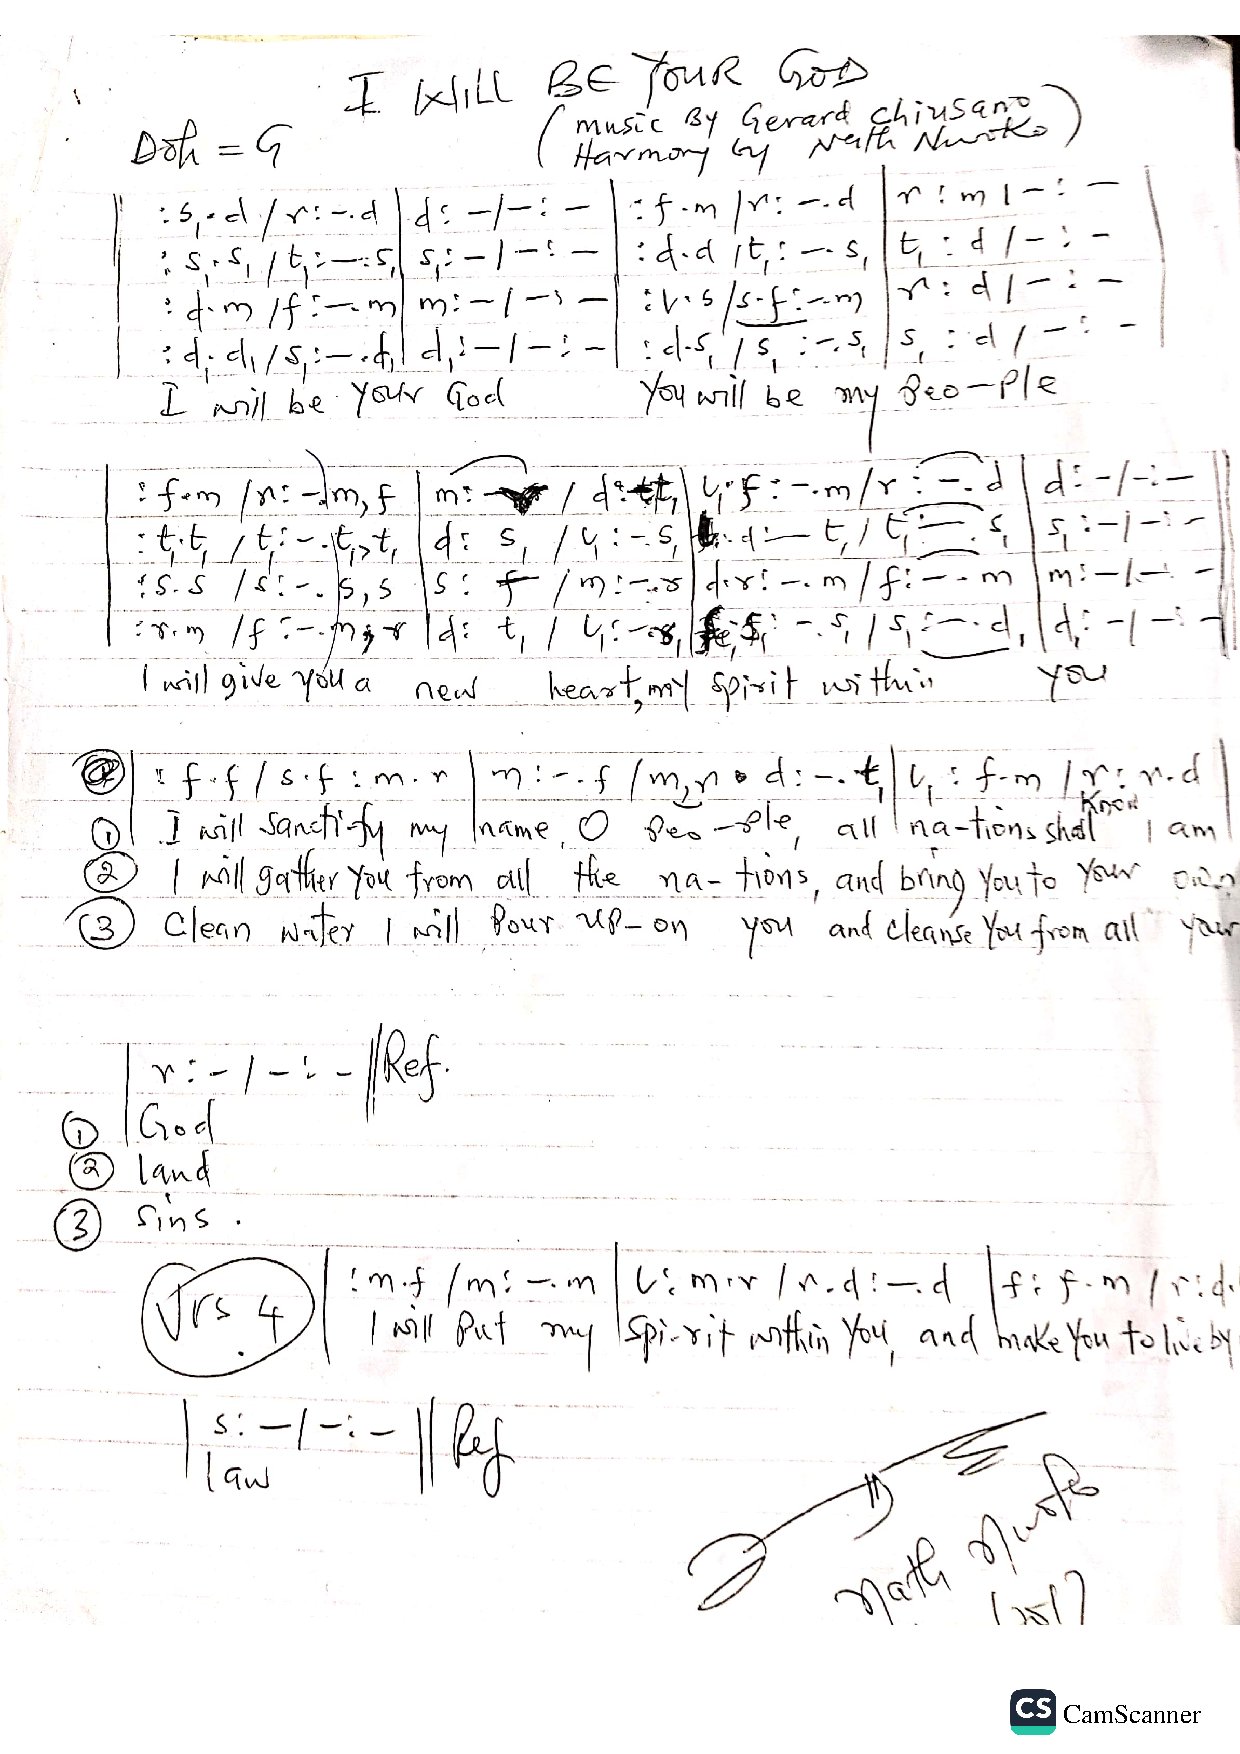 I WILL BE YOUR GOD
(music By Gerard Chiusano
Doh = G
Harmony by Nath Nwoko)
|| :s₁.d / r:-.d | d:-/-:- | :f.m / r:-.d | r:m / -:- ||
| :s₁.s₁ / t₁:-.s₁ | s₁:-/-:- | :d.d / t₁:-.s₁ | t₁:d / -:- |
| :d.m / f:-.m | m:-/-:- | :l.s / s.f:-.m | r:d / -:- |
| :d.d₁ / s₁:-.d₁ | d₁:-/-:- | :d.s₁ / s₁:-.s₁ | s₁:d / -:- |
I will be your God You will be my Peo-ple
| :f.m / r:-.m,f | m:- / d:-.t₁ | l₁.f:-.m / r:-.d | d:-/-:- ||
| :t₁.t₁ / t₁:-.t₁,t₁ | d: s₁ / l₁:-.s₁ | d:- t₁ / t₁:-.s₁ | s₁:-/-:-
| :s.s / s:-.s,s | s: f / m:-.r | d.r:-.m / f:-.m | m:-/-:-
| :r.m / f:-.m,r | d: t₁ / l₁:-.s₁ | f₁:-.s₁ / s₁:-.d₁ | d₁:-/-:-
I will give you a new heart, my spirit within you
| :f.f / s.f:m.r | m:-.f / m,r . d:-.t₁ | l₁:f.m / r:r.d |
① I will Sancti-fy my name, O Peo-ple, all na-tions shall Know I am
② I will gather You from all the na-tions, and bring You to Your own
③ Clean water I will Pour up-on you and cleanse You from all your
| r:-/-:- || Ref.
① God
② land
③ sins.
Vrs 4 | :m.f / m:-.m | l:m.r / r.d:-.d | f:f.m / r:d.
I will Put my Spi-rit within You, and make You to live by
| s:-/-:- || Ref
law
Nath Nwoko
2017
CS CamScanner